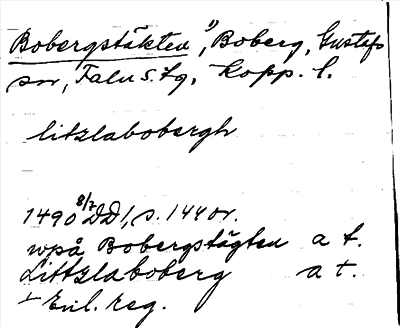 Bobergstäkten ¹⁾, Boberg, Gustafs
sn, Falu s. tg, Kopp. l.
litzlabobergh
1490 8/7 DD1, s. 144 or.
wpå Bobergstägten a t.
Littzlaboberg a t.
Enl. reg.